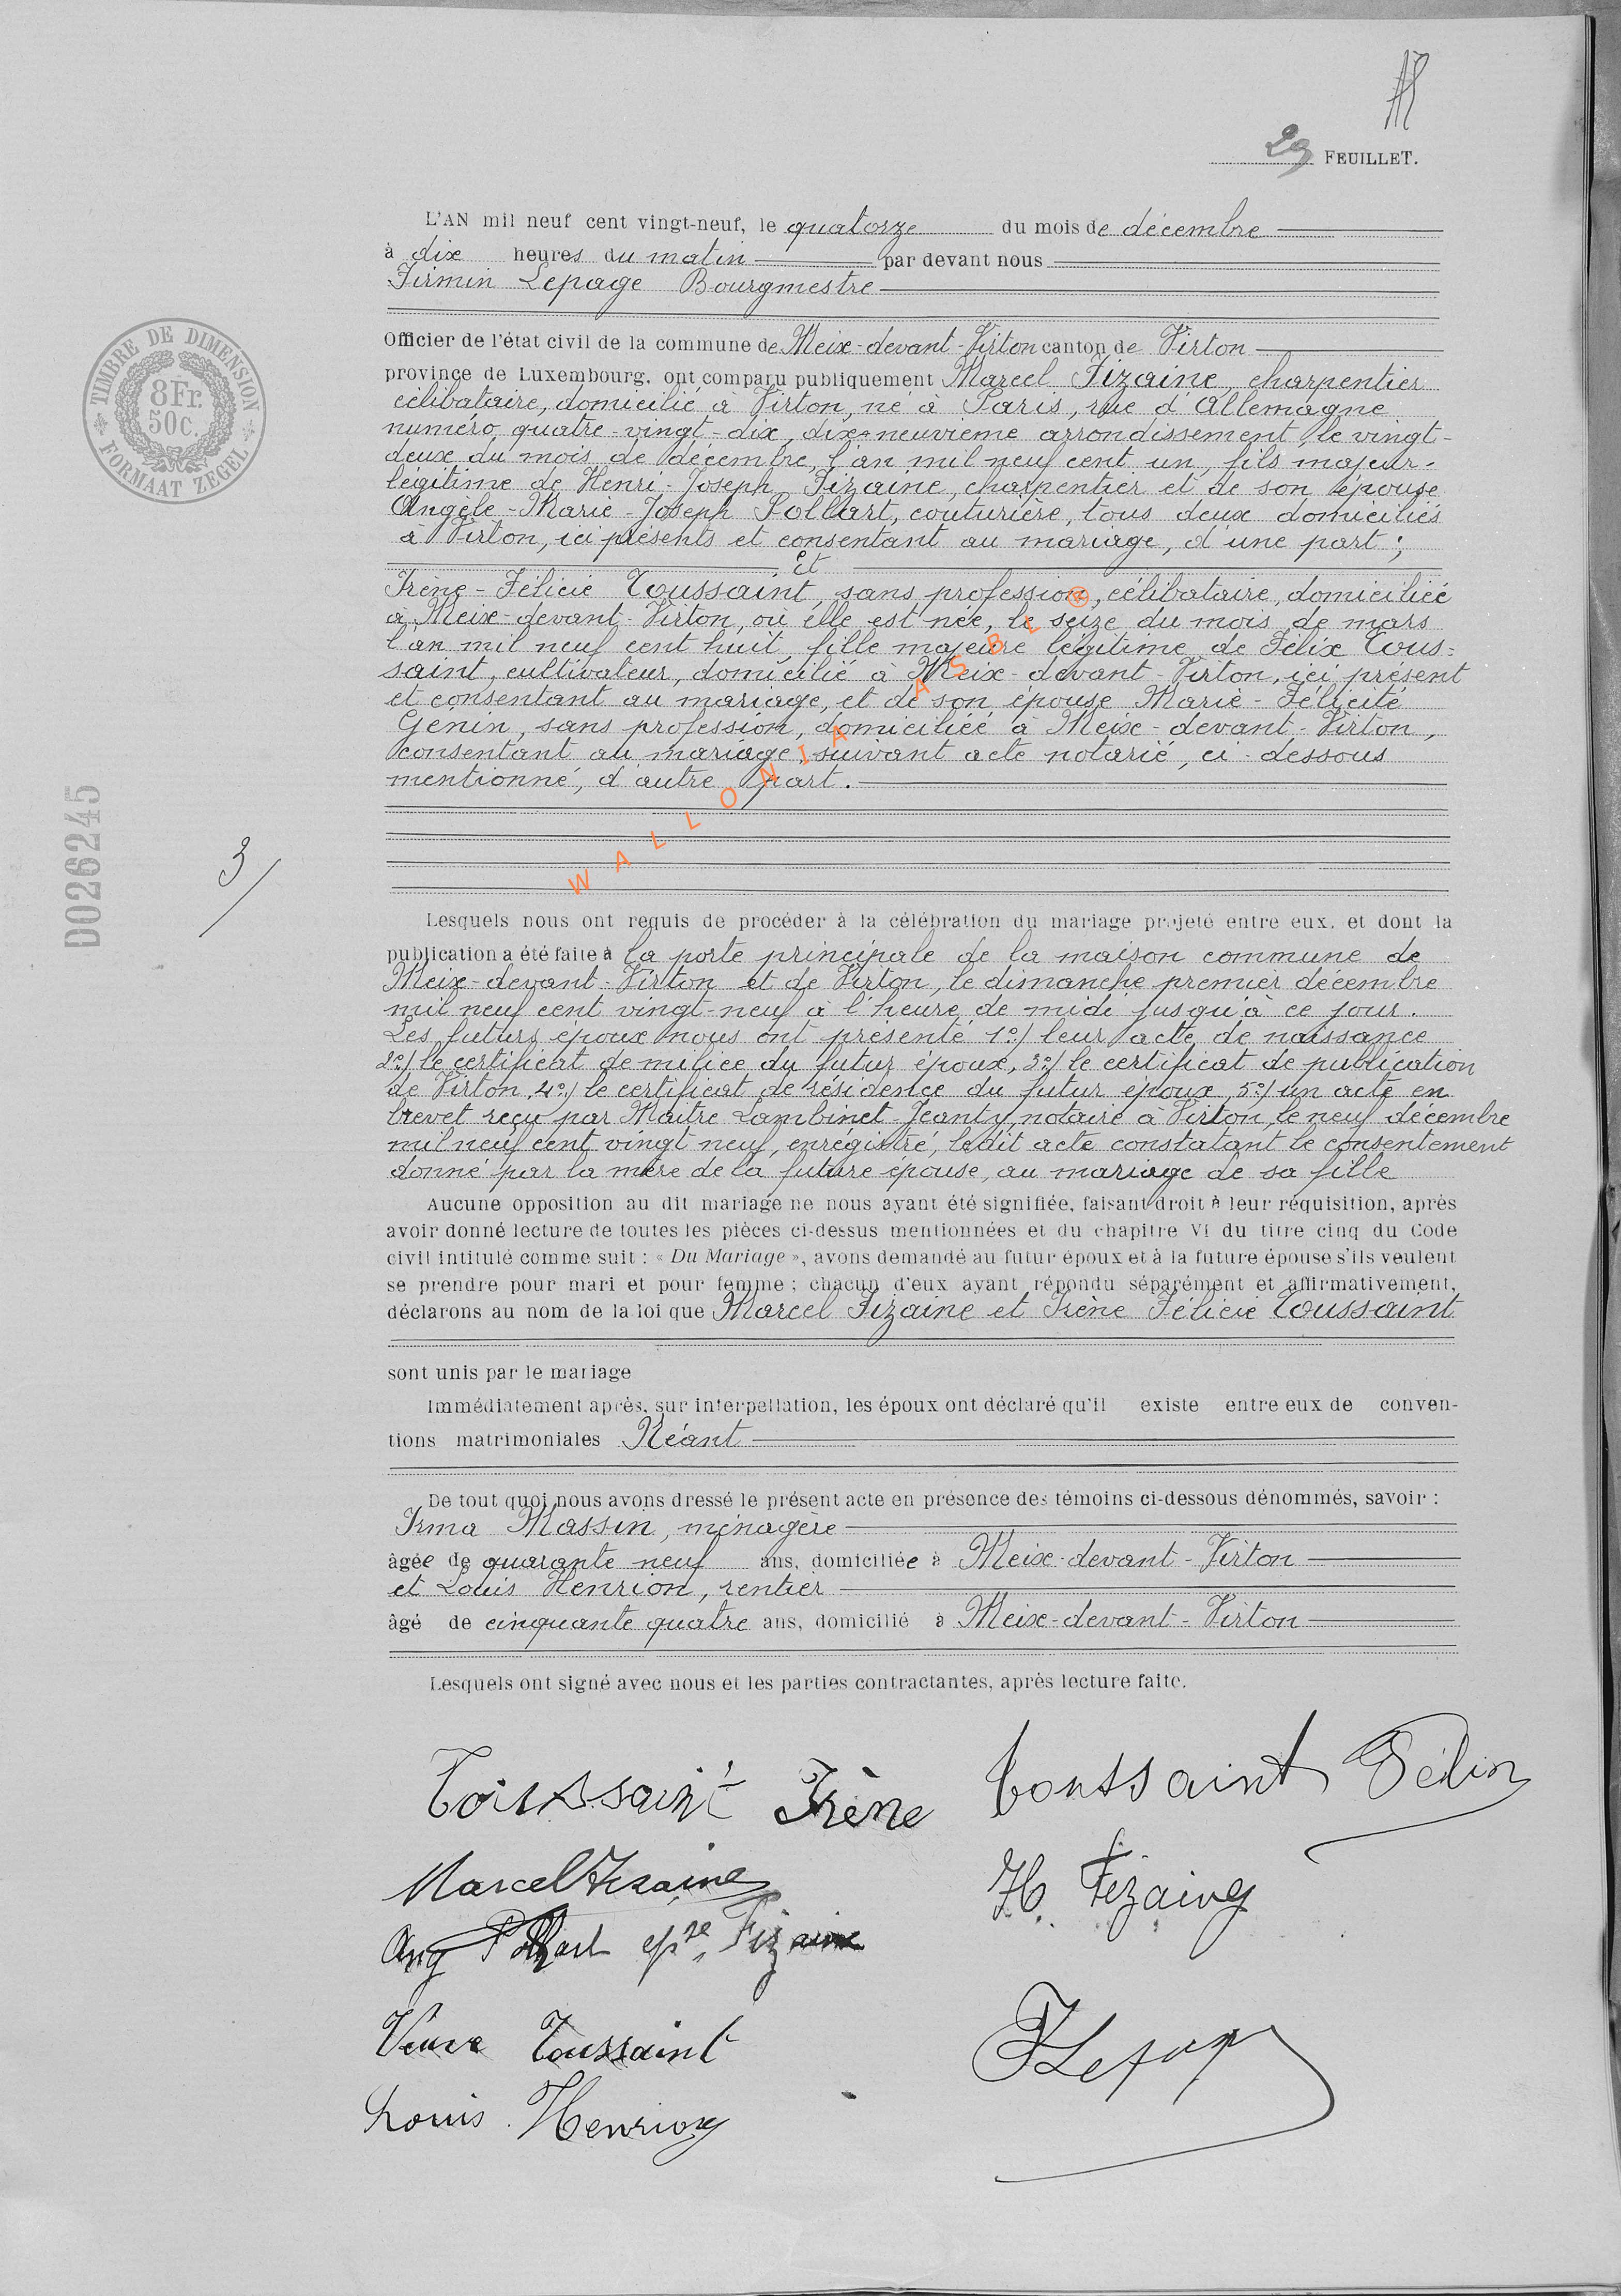 29 FEUILLET.
L'AN mil neuf cent vingt-neuf, le quatorze du mois de décembre
à dix heures du matin par devant nous
Firmin Lepage Bourgmestre
Officier de l'état civil de la commune de Meix-devant-Virton canton de Virton
province de Luxembourg, ont comparu publiquement Marcel Fizaine, charpentier
célibataire, domicilié à Virton, né à Paris, rue d'Allemagne
numéro quatre-vingt-dix, dix-neuvième arrondissement, le vingt-
deux du mois de décembre, l'an mil neuf cent un, fils majeur-
légitime de Henri-Joseph Fizaine, charpentier et de son épouse
Angèle-Marie-Joseph Pollart, couturière, tous deux domiciliés
à Virton, ici présents et consentant au mariage, d'une part ;
Et
Irène-Félicie Toussaint, sans profession, célibataire, domiciliée
à Meix-devant-Virton, où elle est née, le seize du mois de mars
l'an mil neuf cent huit, fille majeure légitime de Félix Tous=
saint, cultivateur, domicilié à Meix-devant-Virton, ici présent
et consentant au mariage, et de son épouse Marie-Félicité
Génin, sans profession, domiciliée à Meix-devant-Virton,
consentant au mariage, suivant acte notarié, ci-dessous
mentionné, d'autre part.
WALLONIA ASBL ®
TIMBRE DE DIMENSION
8Fr.
50c.
FORMAAT ZEGEL
D026245
3/
Lesquels nous ont requis de procéder à la célébration du mariage projeté entre eux, et dont la
publication a été faite à la porte principale de la maison commune de
Meix-devant-Virton et de Virton, le dimanche premier décembre
mil neuf cent vingt-neuf à l'heure de midi jusqu'à ce jour.
Les futurs époux nous ont présenté 1º/ leur acte de naissance
2º/ le certificat de milice du futur époux, 3º/ le certificat de publication
de Virton, 4º/ le certificat de résidence du futur époux, 5º/ un acte en
brevet reçu par Maître Lambinet-Jeanty, notaire à Virton, le neuf décembre
mil neuf cent vingt neuf, enrégistré, ledit acte constatant le consentement
donné par la mère de la future épouse, au mariage de sa fille
Aucune opposition au dit mariage ne nous ayant été signifiée, faisant droit à leur réquisition, après
avoir donné lecture de toutes les pièces ci-dessus mentionnées et du chapitre VI du titre cinq du Code
civil intitulé comme suit : « Du Mariage », avons demandé au futur époux et à la future épouse s'ils veulent
se prendre pour mari et pour femme ; chacun d'eux ayant répondu séparément et affirmativement,
déclarons au nom de la loi que Marcel Fizaine et Irène Félicie Toussaint
sont unis par le mariage
Immédiatement après, sur interpellation, les époux ont déclaré qu'il existe entre eux de conven-
tions matrimoniales Néant
De tout quoi nous avons dressé le présent acte en présence des témoins ci-dessous dénommés, savoir :
Irma Massin, ménagère
âgée de quarante neuf ans, domiciliée à Meix-devant-Virton
et Louis Henrion, rentier
âgé de cinquante quatre ans, domicilié à Meix-devant-Virton
Lesquels ont signé avec nous et les parties contractantes, après lecture faite.
Toussaint Irène Toussaint Félix
Marcel Fizaine H. Fizaine
Ang Pollart épse Fizaine
Veuve Toussaint FLepage
Louis Henrion